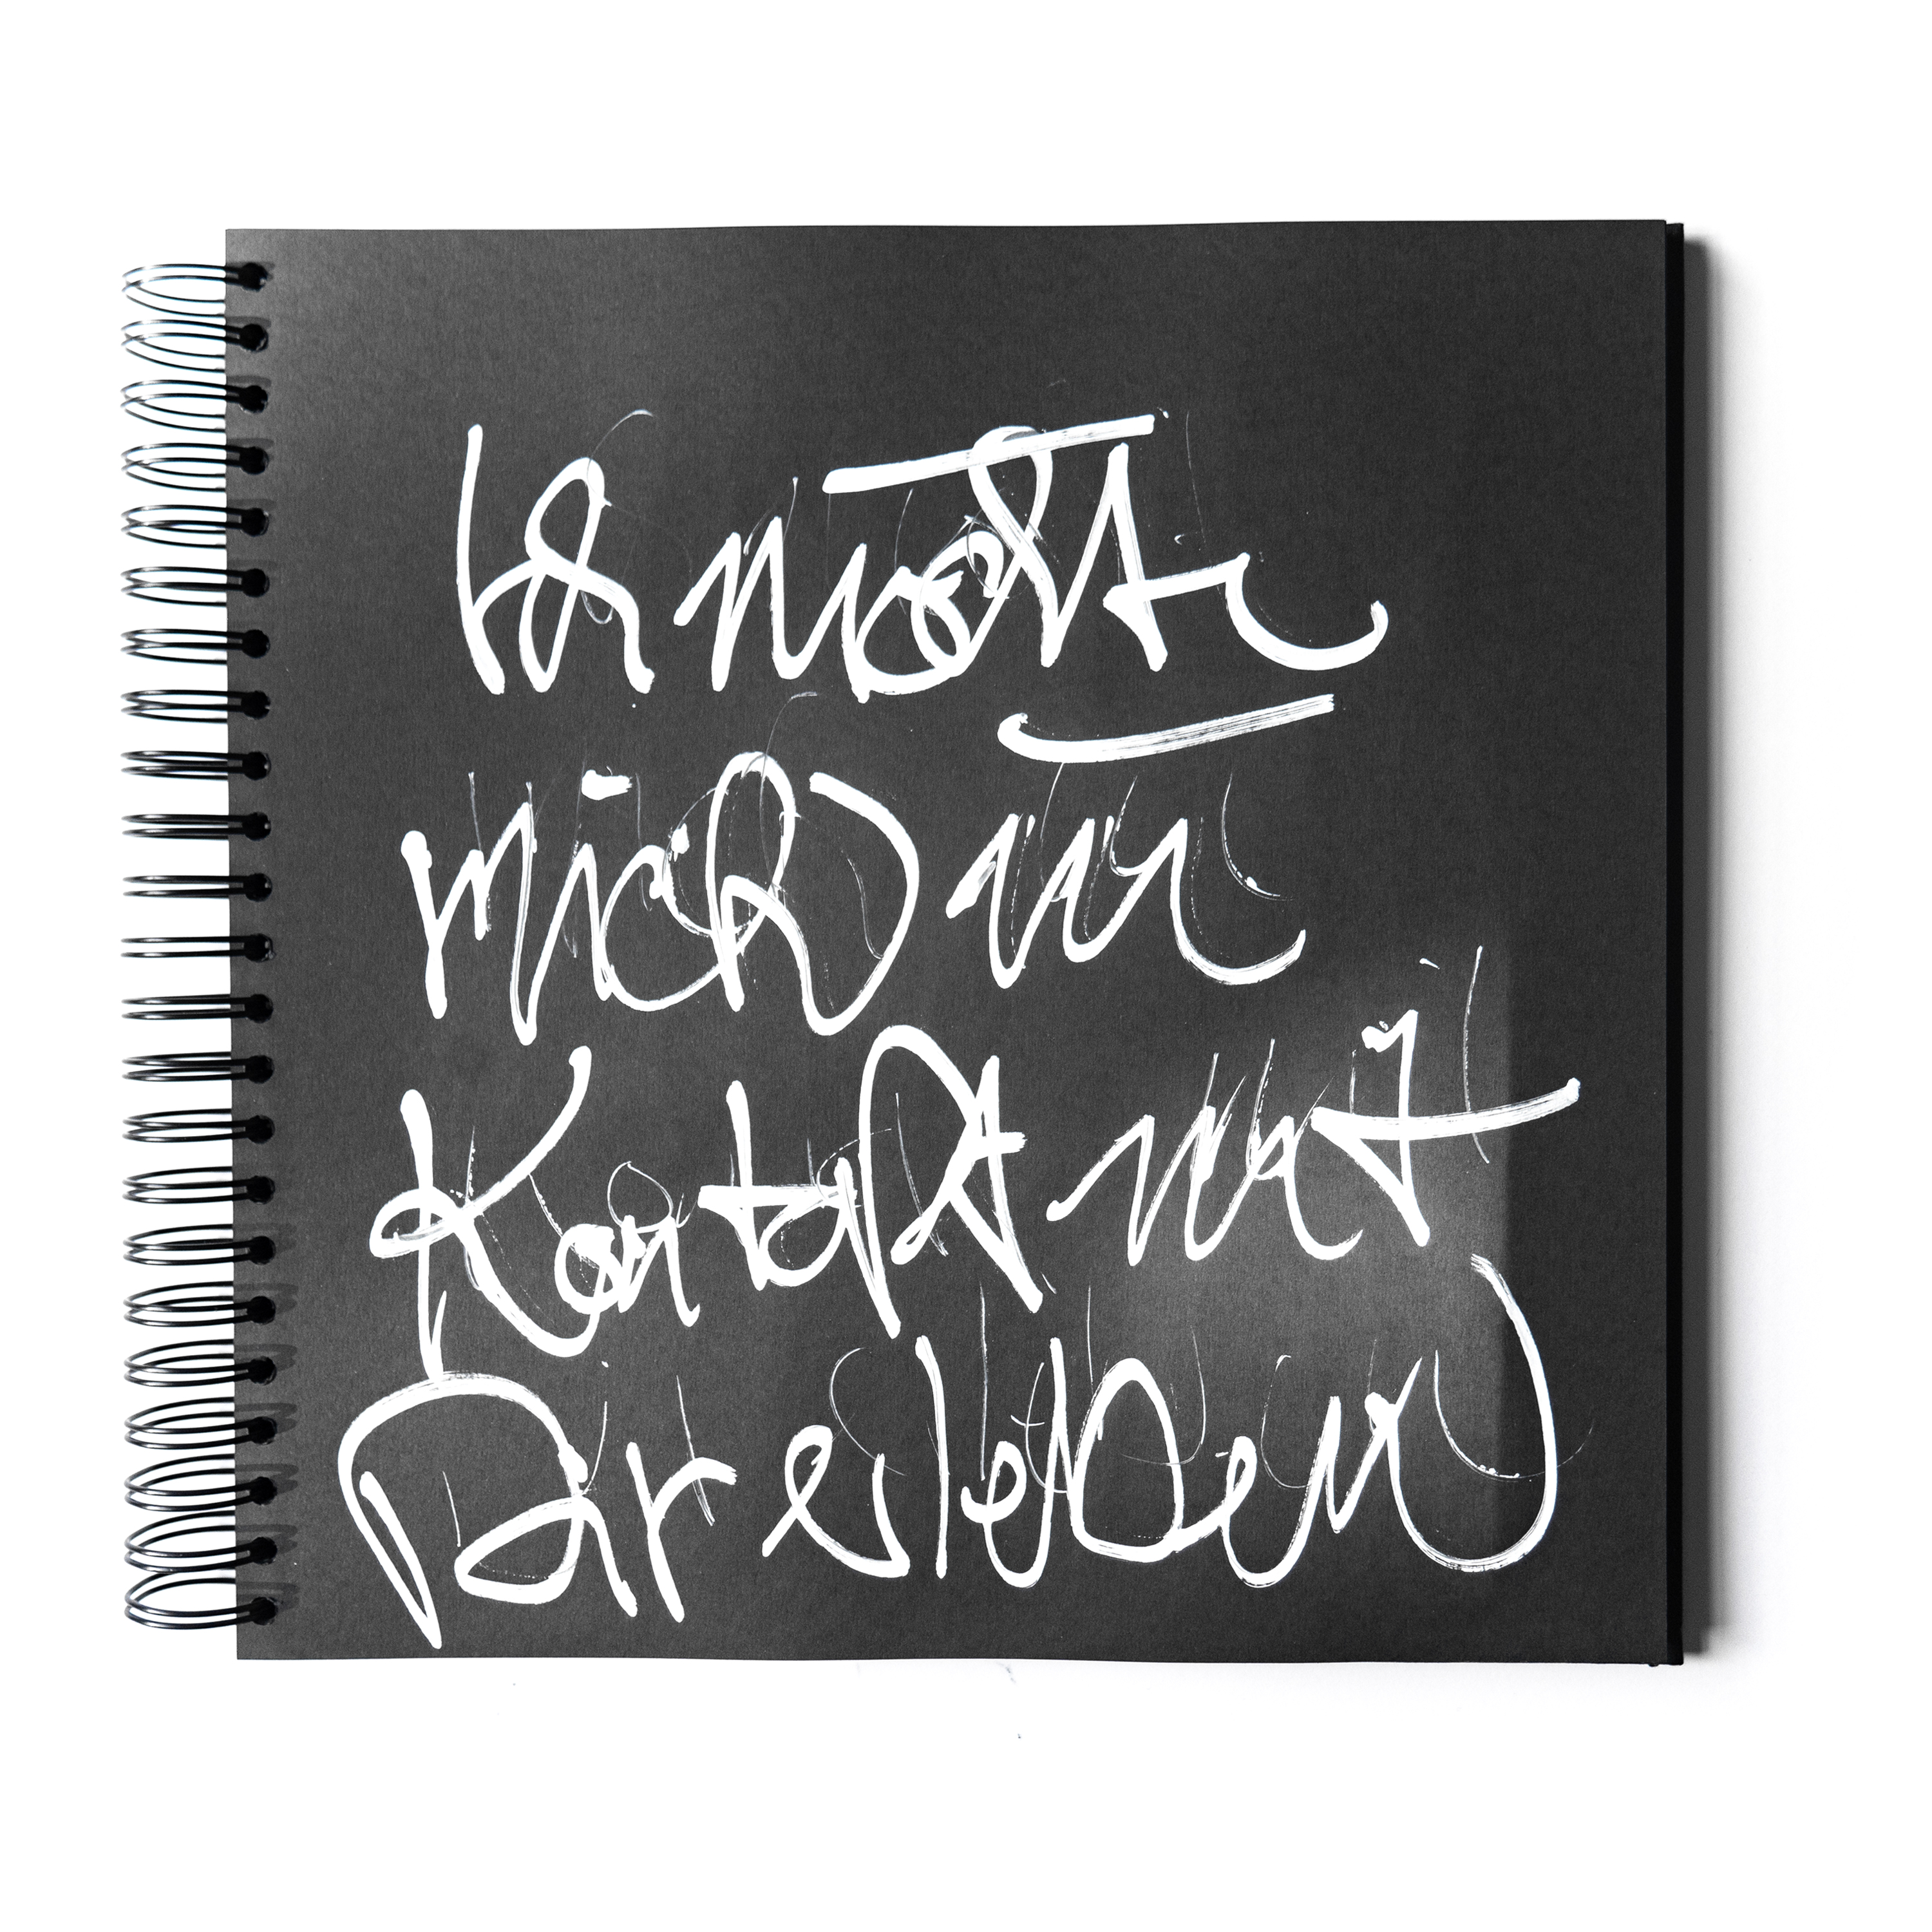 Ich möchte
mich im
Kontakt mit
Dir erleben